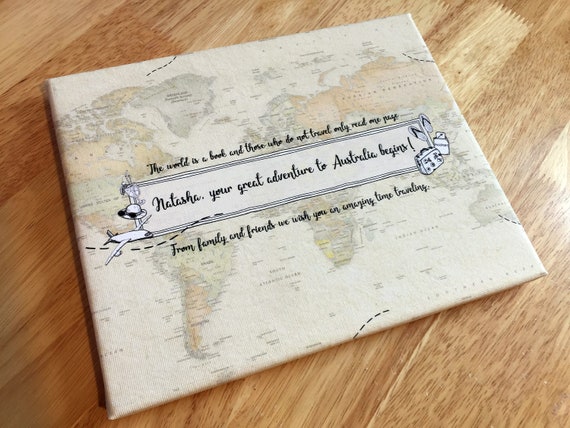 The world is a book and those who do not travel only read one page
Natasha, your great adventure to Australia begins!
From family and friends we wish you an amazing time traveling.
SOUTH
ATLANTIC OCEAN